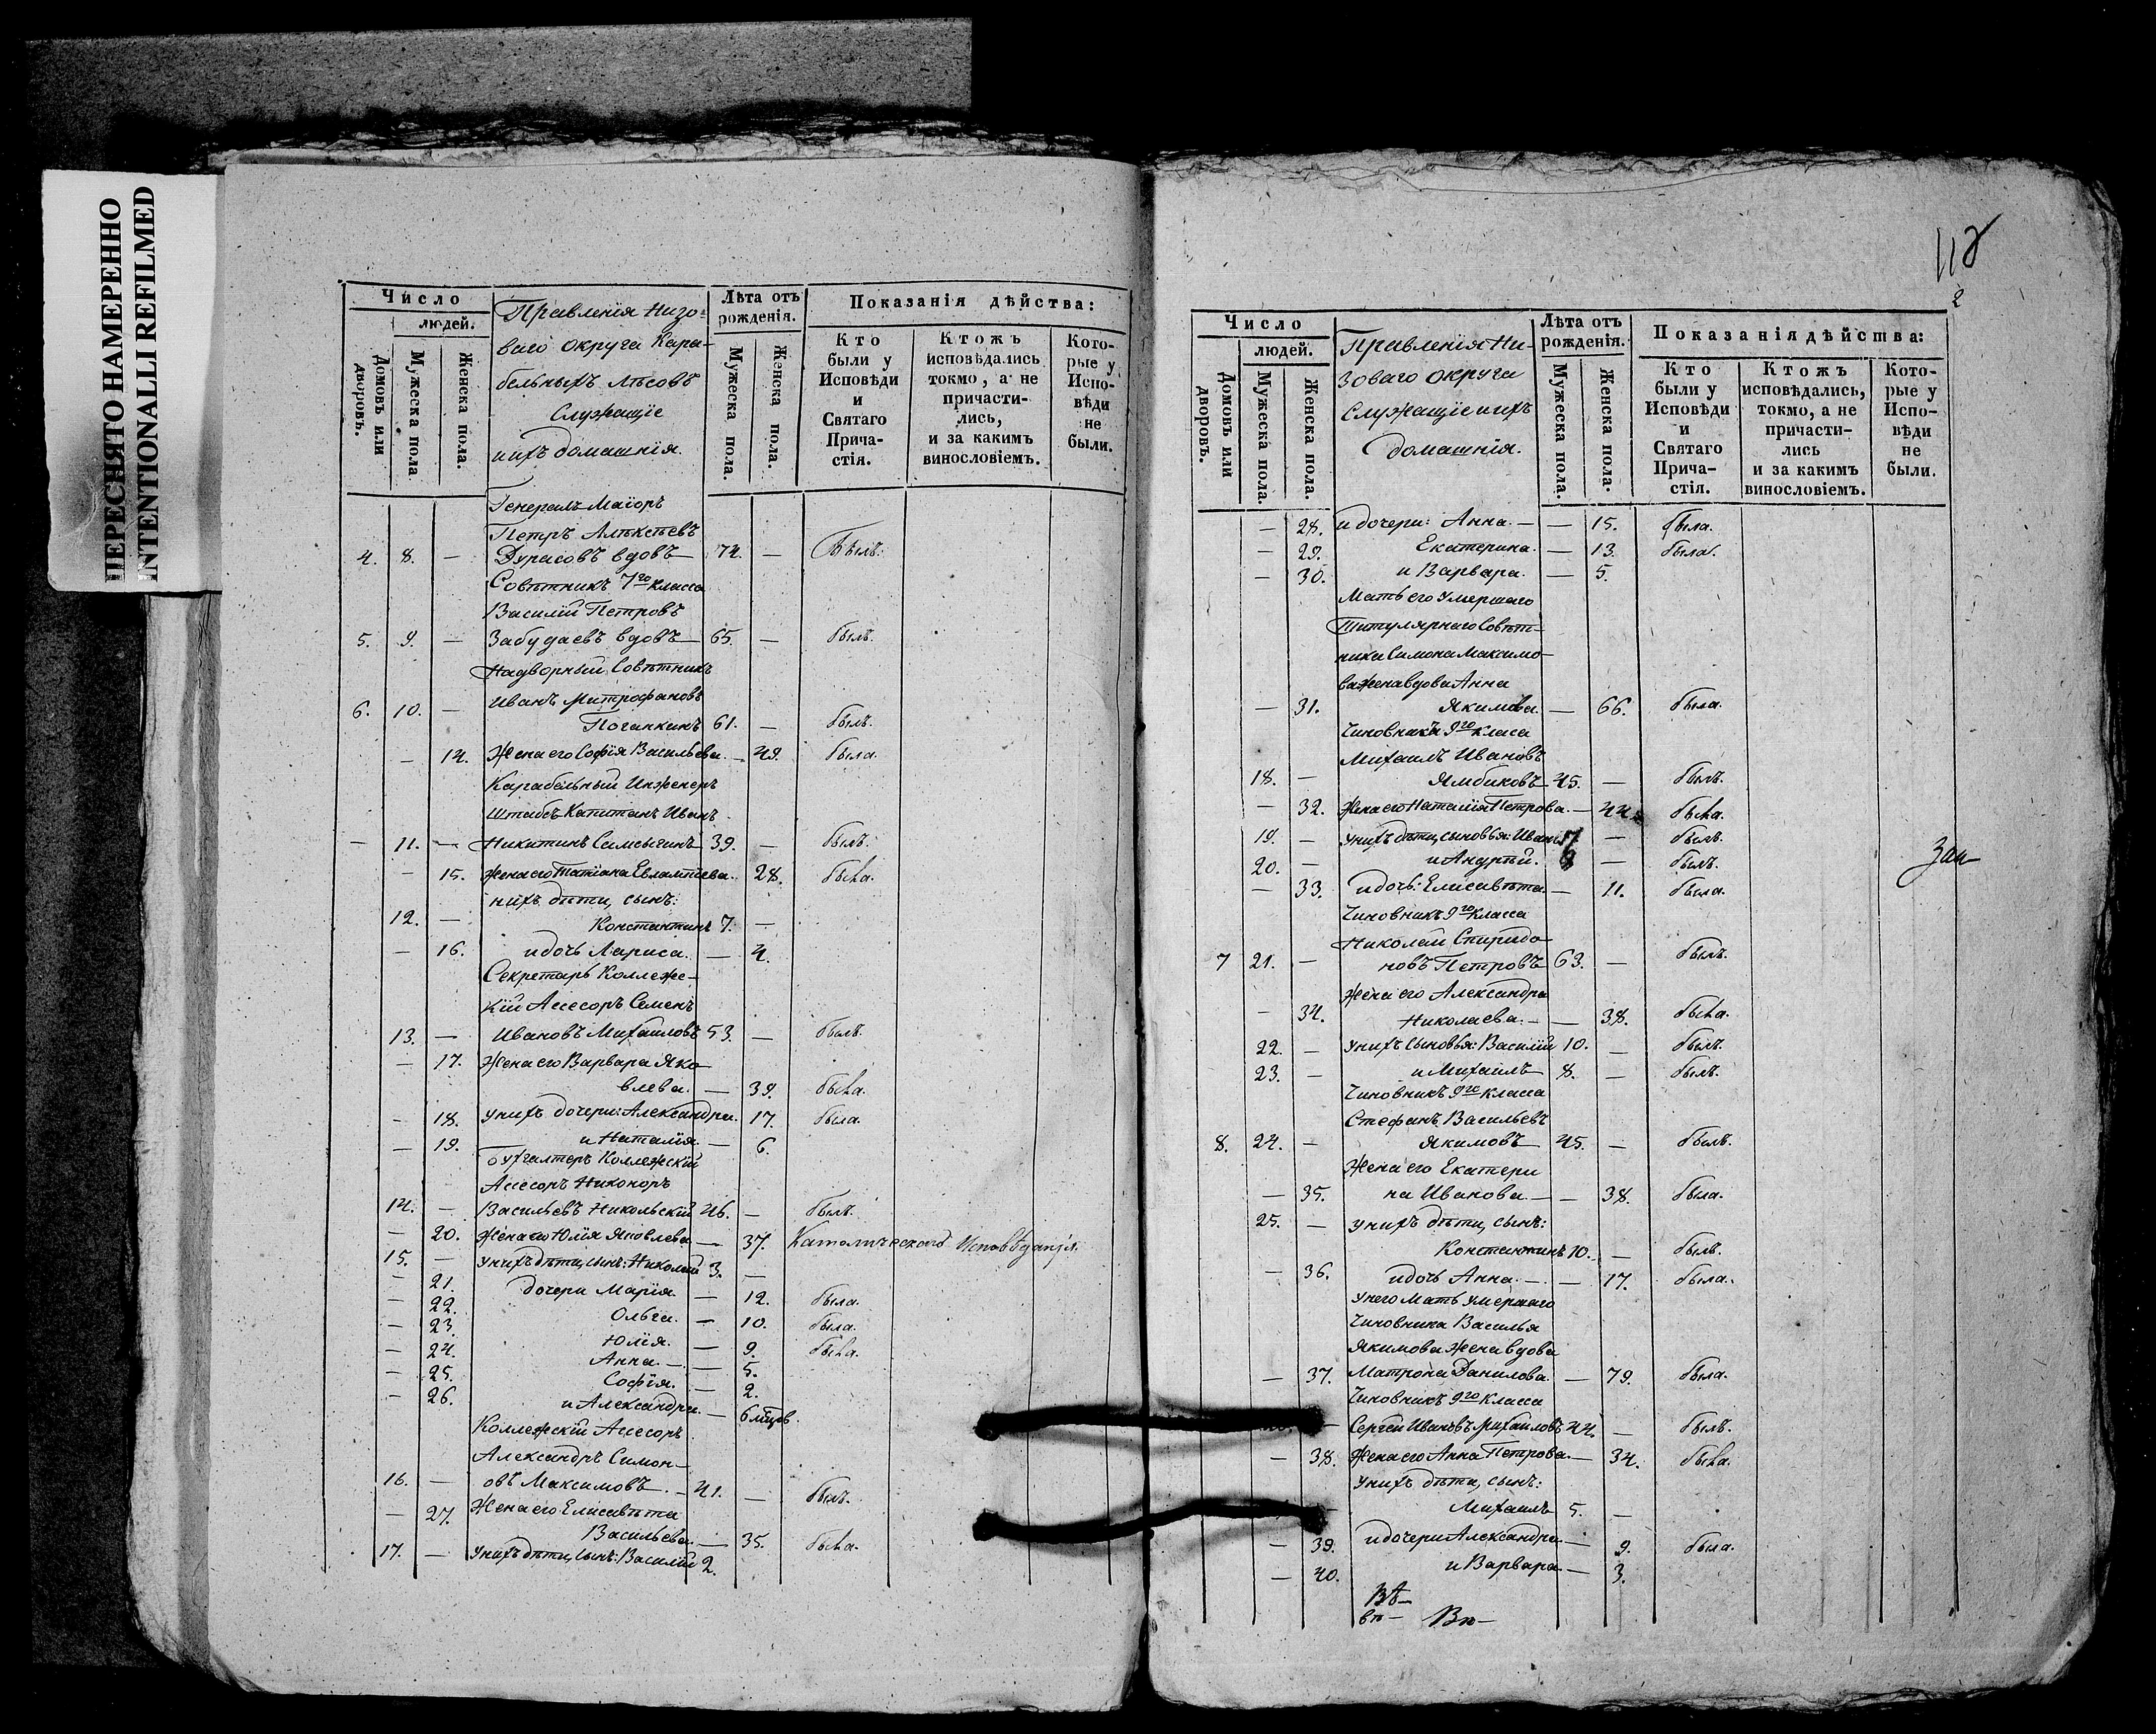 ПЕРЕСНЯТО НАМЕРЕННО
INTENTIONALLI REFILMED
Число
людей.
Домовъ или дворовъ.
Мужеска пола
Женска пола.
Правленія Низо-
ваго округа Кара-
бельныхъ лѣсовъ
Служащіе
ихъ домашнія.
Лѣта отъ рожденія.
Мужеска пола.
Женска пола.
Показанія дѣйства:
Кто были у Исповѣди и Святаго Прича-стія.
Ктожъ исповѣдались токмо, а не причасти-лись, и за какимъ винословіемъ.
Кото-рые у Испо-вѣди не были.
Генералъ Маіоръ
Петръ Алѣксѣевъ
4. 8. — Дурасовъ вдовъ — 74. — Былъ.
Совѣтникъ 7го класса
Василій Петровъ
5. 9. — Забудаевъ вдовъ — 65. — былъ.
Надворный Совѣтникъ
Иванъ Митрофановъ
6. 10. — Поганкинъ 61. — былъ.
— 14. Жена его Софія Васильева. — 49. была.
Карабельный Инженеръ
Штабсъ Капитанъ Иванъ
— 11. — Никитинъ Самсыгинъ 39. — былъ.
— 15. Жена его Татіана Евлампіева. 28. была.
нихъ дѣти, сынъ:
12. — Константинъ 7. —
— 16. и дочь Лариса. — 4.
Секретарь Коллеже-
кій Ассесоръ Семенъ
13. — Ивановъ Михаиловъ 53. — былъ.
— 17. Жена его Варвара Яко-
влева. — 39. была.
— 18. у нихъ дочери: Александра. 17. была.
— 19. и Наталія. — 6.
Бухгалтеръ Коллежскій
Ассесоръ Никоноръ
14. — Васильевъ Никольскій 46. — былъ.
— 20. Жена его Юлія Яковлева — 37. Католическаго Исповѣданія.
15. — у нихъ дѣти, сынъ: Николай 3. —
— 21. дочери Марія. — 12. была.
— 22. Ольга. — 10. была.
— 23. Юлія. — 9. была.
— 24. Анна. — 5.
— 25. Софія. — 2.
— 26. и Александра. — 6 мѣцов.
Коллежскій Ассесоръ
Александръ Симон-
16. — овъ Максимовъ. — 41. — былъ.
— 27. Жена его Елисавѣта
Васильева. — 35. была.
17. — у нихъ дѣти, сынъ: Василій 2.
118
2
Число
людей.
Домовъ или дворовъ.
Мужеска пола.
Женска пола.
Правленія Ни-
зоваго округа
Служащіе ихъ
домашнія.
Лѣта отъ рожденія.
Мужеска пола.
Женска пола.
Показанія дѣйства:
Кто были у Исповѣди и Святаго Прича-стія.
Ктожъ исповѣдались, токмо, а не причасти-лись и за какимъ винословіемъ.
Кото-рые у Испо-вѣди не были.
— 28. и дочери: Анна. — — 15. была.
— 29. Екатерина. — 13. была.
— 30. и Варвара. — 5.
Мать его умершаго
Титулярнаго Совѣт-
ника Симона Максимо-
ва жена вдова Анна
— 31. Якимова. — 66. была.
Чиновникъ 9го Класа
Михаилъ Ивановъ
18. — Ямбиковъ 45. — былъ.
— 32. Жена его Наталія Петрова. — 44. была.
19. — у нихъ дѣти, сыновья: Иванъ 17 — былъ.
20. — и Андрѣй. — былъ.
— 33. и дочь: Елисавѣта — 11. была.
Зап—
Чиновникъ 9го Класса
Николай Спиридо-
7 21. — новъ Петровъ 63. — былъ.
Жена его Александра
— 34. Николаева. — — 38. была.
22. — у нихъ сыновья: Василій 10. — былъ.
23. — и Михаилъ 8. — былъ.
Чиновникъ 9го Класса
Стефанъ Васильевъ
8. 24. — Якимовъ 45. — былъ.
Жена его Екатери
— 35. на Иванова. — — 38. была.
25. — у нихъ дѣти, сынъ:
Константинъ 10. — былъ.
— 36. и дочь Анна. — — 17. была.
У него Мать умершаго
Чиновника Василья
Якимова жена вдова
— 37. Матрона Данилова. — 79. была.
Чиновникъ 9го Класса
— Сергѣй Ивановъ Михаиловъ 44. — былъ.
— 38. Жена его Анна Петрова. — 34. была.
у нихъ дѣти, сынъ:
— Михаилъ 5. —
— 39. и дочери Александра. — 9. была.
— 40. и Варвара. — 3.